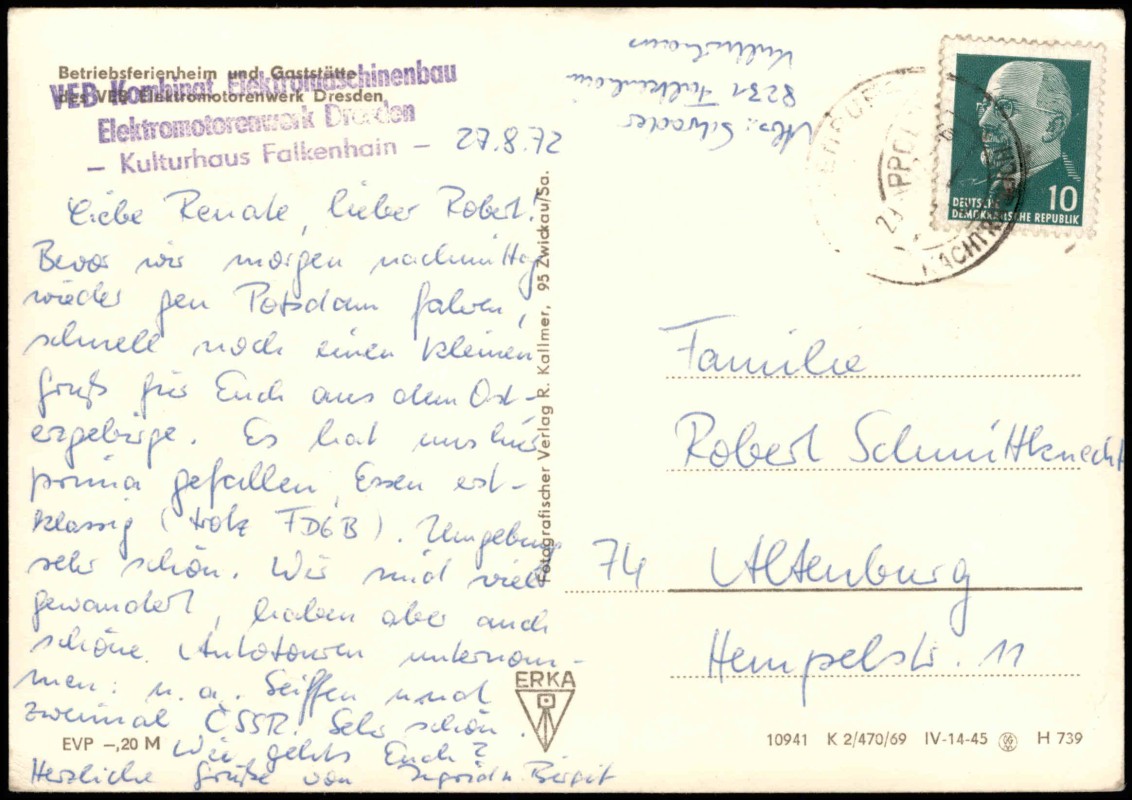 Betriebsferienheim und Gaststätte
des VEB Elektromotorenwerk Dresden
VEB Kombinat Elektromaschinenbau
Elektromotorenwerk Dresden
– Kulturhaus Falkenhain –
27.8.72
Liebe Renate, lieber Robert!
Bevor wir morgen nachmittag
wieder gen Potsdam fahren,
schnell noch einen kleinen
Gruß für Euch aus dem Ost-
erzgebirge. Es hat uns hier
prima gefallen, Essen erst-
klassig (trotz FDGB). Umgebung
sehr schön. Wir sind viel
gewandert, haben aber auch
schöne Autotouren unternom-
men: u.a. Seiffen und
zweimal ČSSR. Sehr schön.
Wie gehts Euch?
Herzliche Grüße von Ingrid u. Birgit
EVP –,20 M
Fotografischer Verlag R. Kallmer, 95 Zwickau/Sa.
ERKA
Abs.: Schroeder
8231 Falkenhain
Kulturhaus
10
DEUTSCHE
DEMOKRATISCHE REPUBLIK
Familie
Robert Schmittknecht
74 Altenburg
Hempelstr. 11
10941 K 2/470/69 IV-14-45 H 739